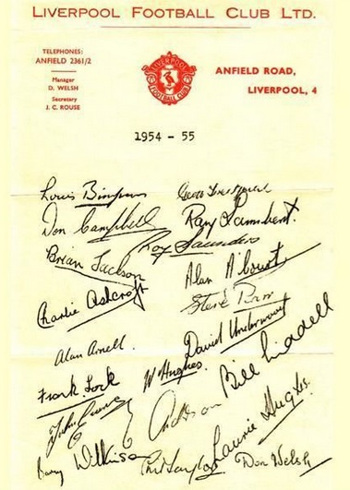 LIVERPOOL FOOTBALL CLUB LTD.
TELEPHONES:
ANFIELD 2361/2
Manager
D. WELSH
Secretary
J. C. ROUSE
LIVERPOOL
FOOTBALL CLUB
ANFIELD ROAD,
LIVERPOOL, 4
1954 - 55
Louis Bimpson
Don Campbell
Ray Lambert.
Roy Saunders
Brian Jackson
Alan A'Court
Charlie Ashcroft
Steve Parr
Alan Arnell.
David Underwood
Frank Lock
W Hughes.
Bill Liddell
John Evans
Barry Wilkinson
Phil Taylor
Laurie Hughes.
Don Welsh